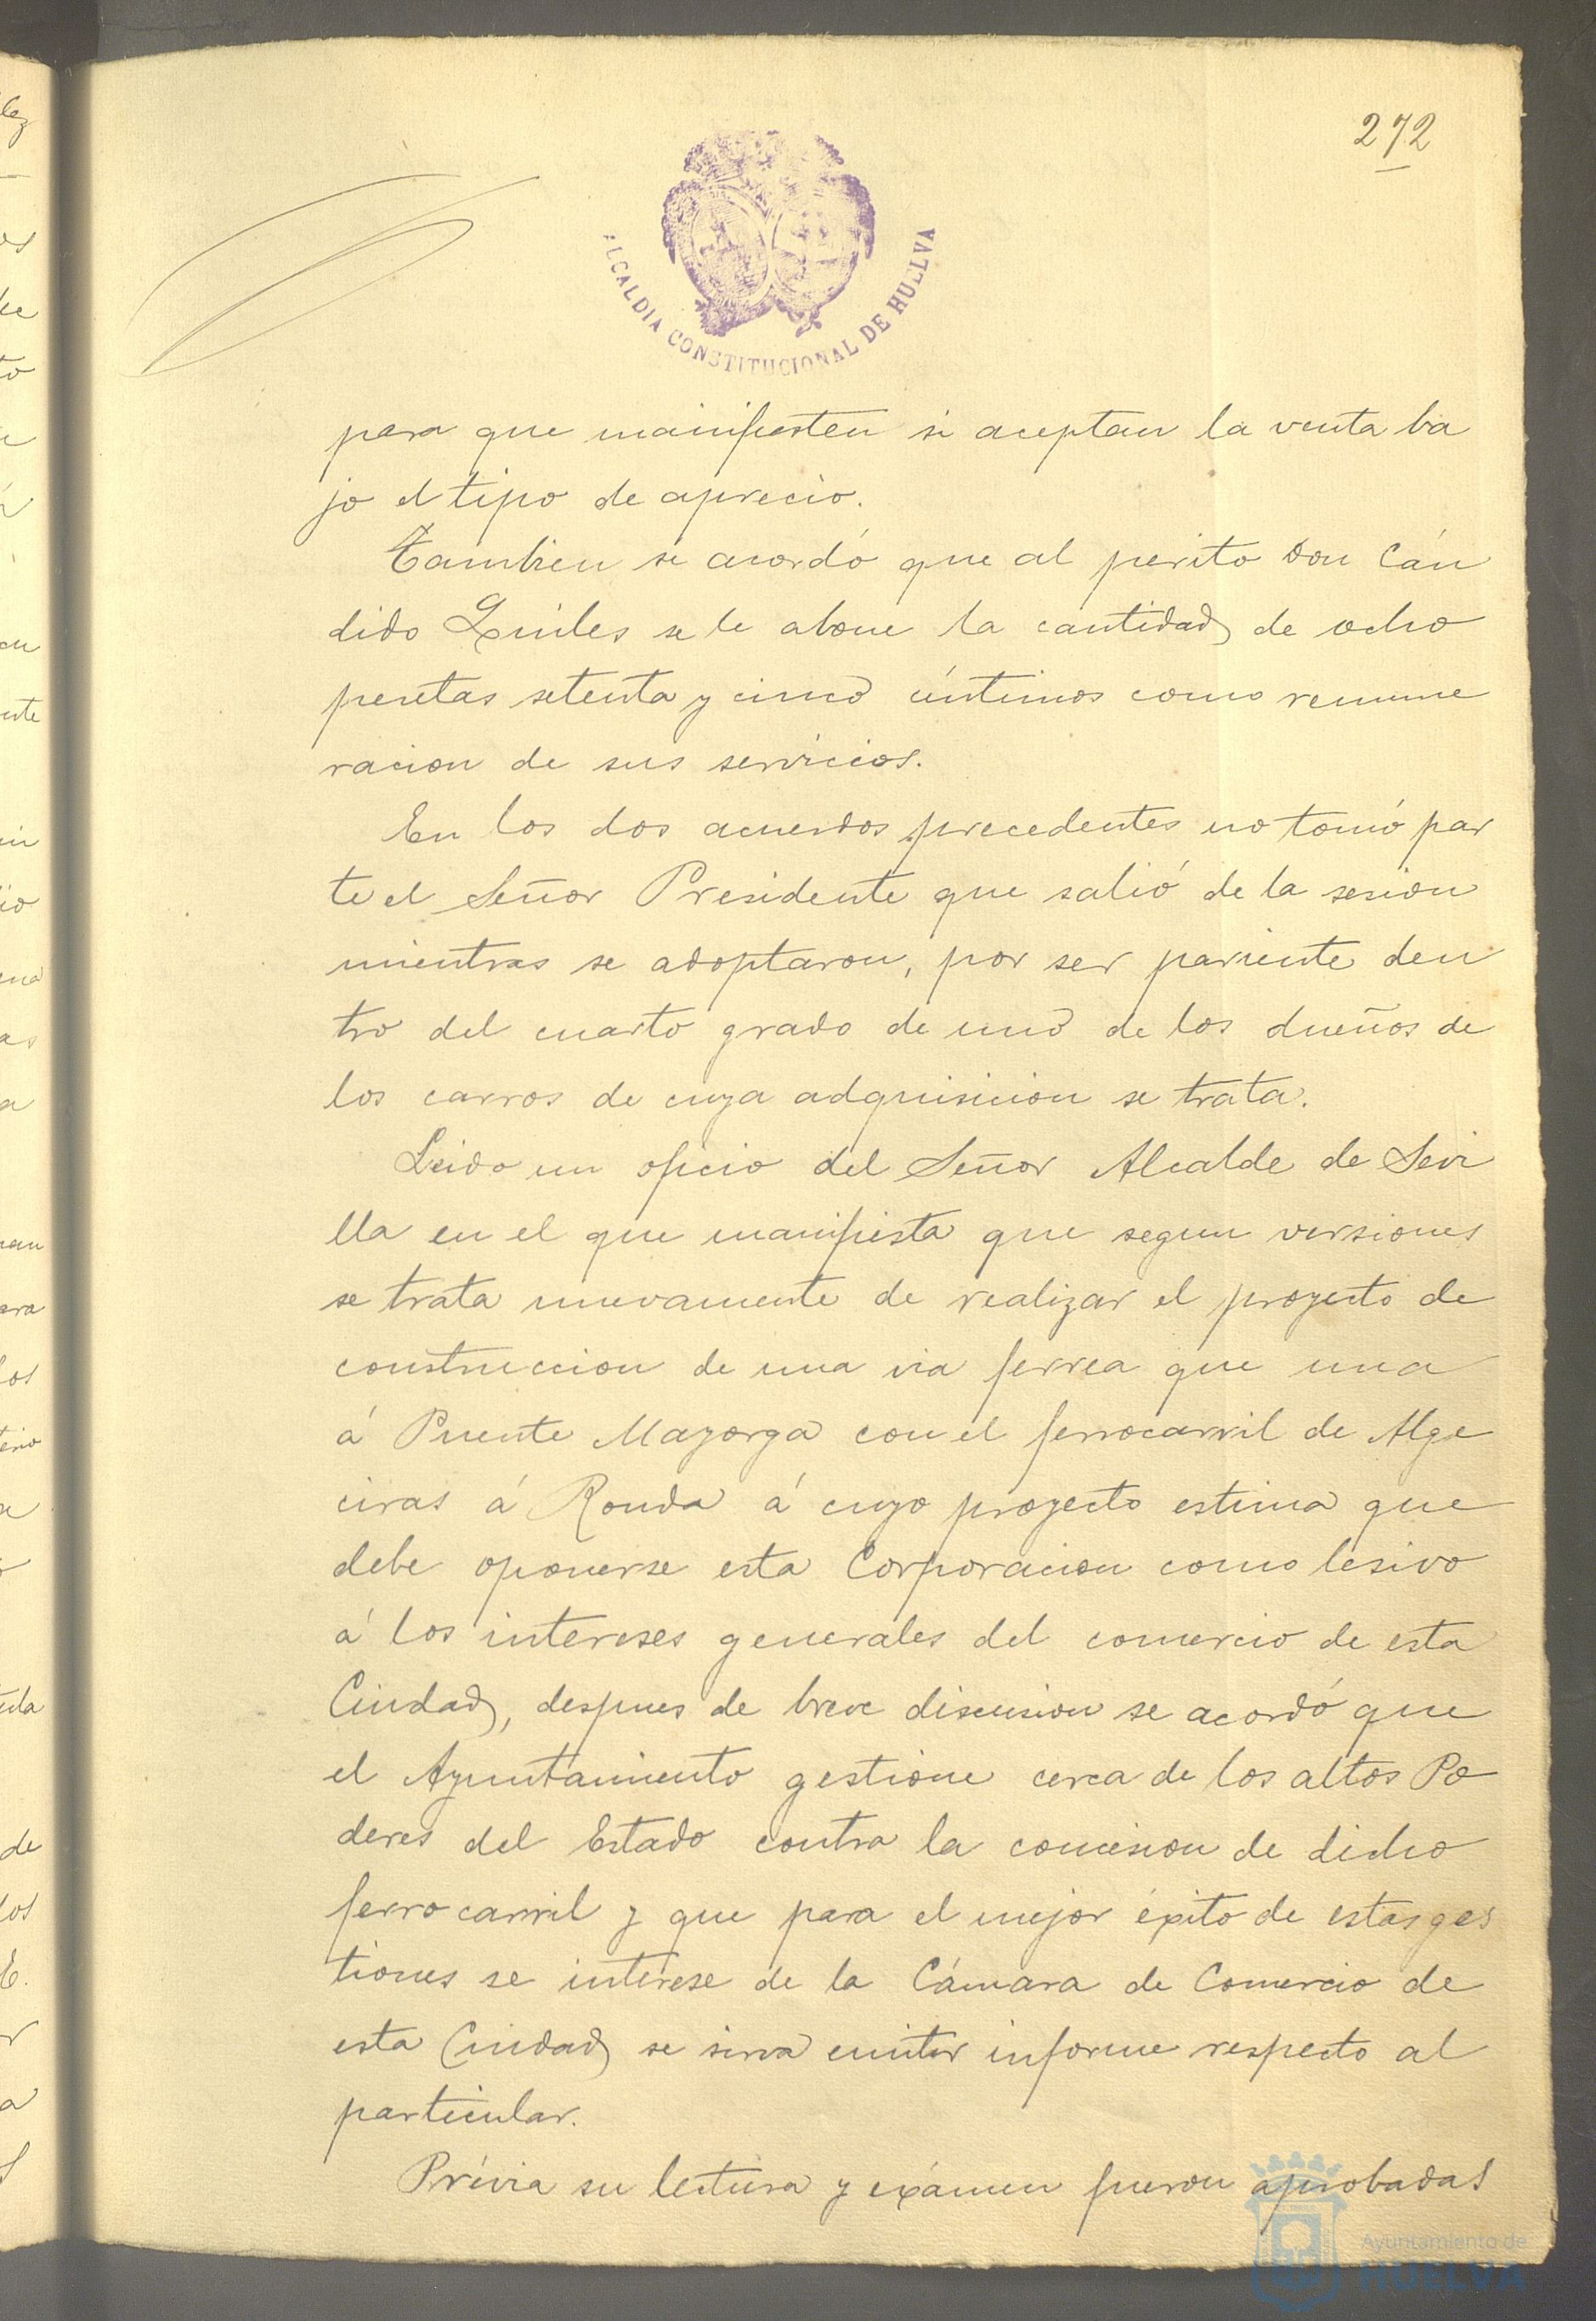 272
ALCALDIA CONSTITUCIONAL DE HUELVA
para que manifiesten si aceptan la venta ba
jo el tipo de aprecio.
Tambien se acordó que al perito Don Cán
dido Quiles se le abone la cantidad de ocho
pesetas setenta y cinco céntimos como remune
racion de sus servicios.
En los dos acuerdos precedentes no tomó par
te el Señor Presidente que salió de la sesion
mientras se adoptaron, por ser pariente den
tro del cuarto grado de uno de los dueños de
los carros de cuya adquisicion se trata.
Leido un oficio del Señor Alcalde de Sevi
lla en el que manifiesta que segun versiones
se trata nuevamente de realizar el proyecto de
construccion de una via ferrea que una
á Puente Mayorga con el ferrocarril de Alge
ciras á Ronda á cuyo proyecto estima que
debe oponerse esta Corporacion como lesivo
á los intereses generales del comercio de esta
Ciudad, despues de breve discusion se acordó que
el Ayuntamiento gestione cerca de los altos Po
deres del Estado contra la concesion de dicho
ferro carril y que para el mejor éxito de estas ges
tiones se interese de la Cámara de Comercio de
esta Ciudad se sirva emitir informe respecto al
particular.
Prévia su lectura y exámen fueron aprobadas
Ayuntamiento de
HUELVA